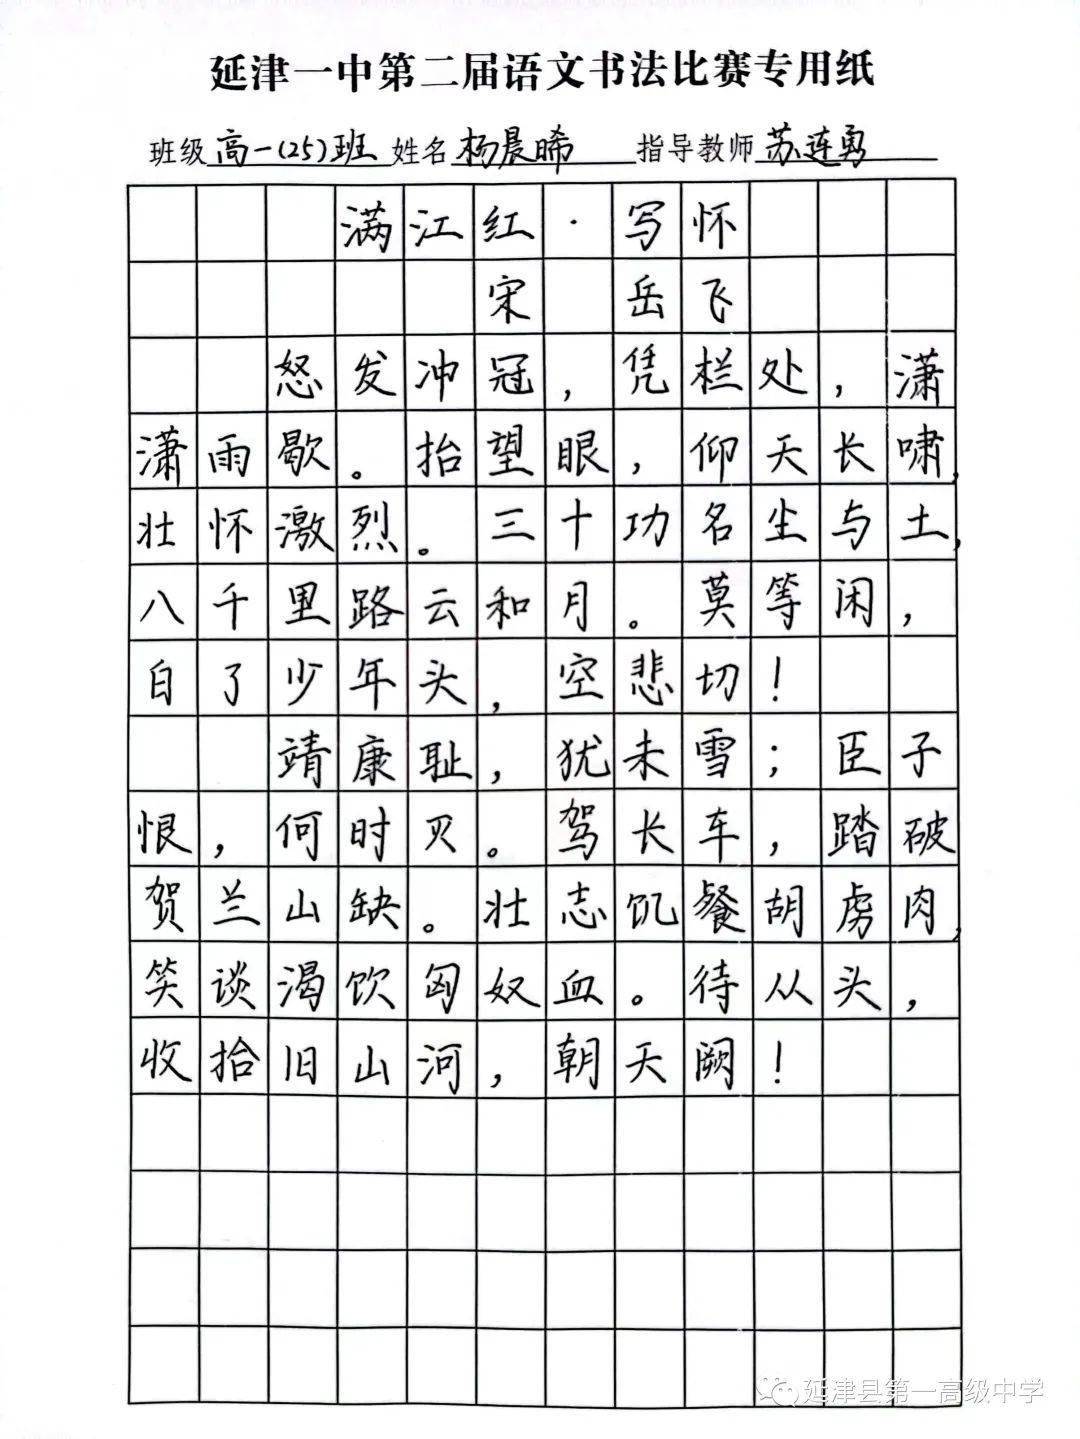 延津一中第二届语文书法比赛专用纸
班级 高一(25)班 姓名 杨晨晞 指导教师 苏连勇
满江红·写怀
宋 岳飞
怒发冲冠，凭栏处，潇
潇雨歇。抬望眼，仰天长啸，
壮怀激烈。三十功名尘与土，
八千里路云和月。莫等闲，
白了少年头，空悲切！
靖康耻，犹未雪；臣子
恨，何时灭。驾长车，踏破
贺兰山缺。壮志饥餐胡虏肉，
笑谈渴饮匈奴血。待从头，
收拾旧山河，朝天阙！
延津县第一高级中学